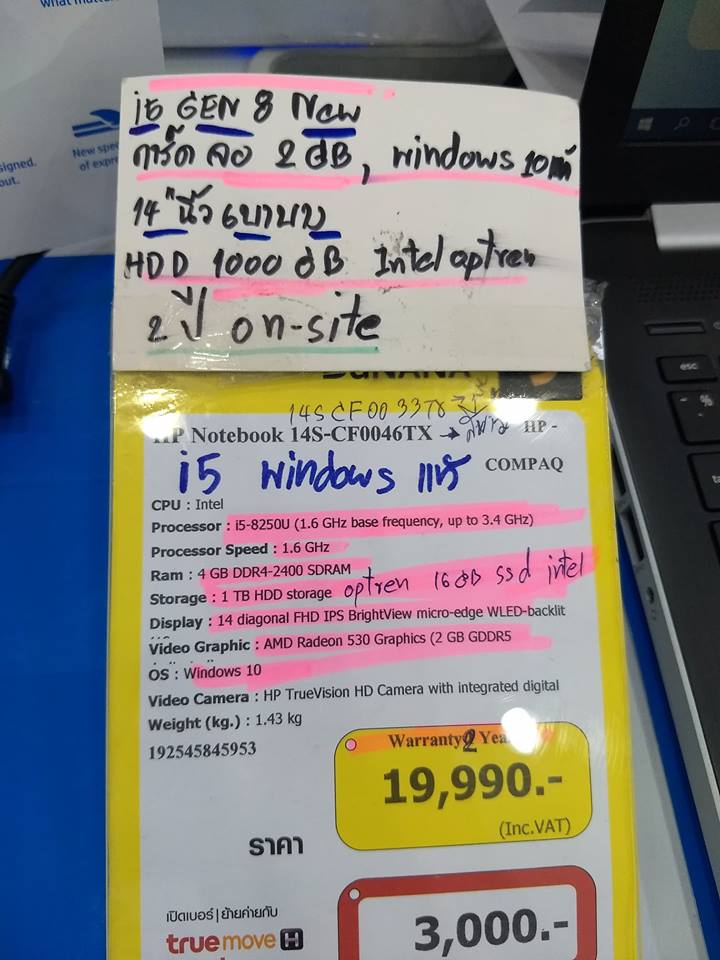 what matter
New spe
of expre
signed.
out.
i5 GEN 8 New
การ์ด จอ 2 GB, windows 10แท้
14" นิ้ว เบาบาง
HDD 1000 GB Intel optren
2 ปี on-site
BaNANA
14S CF00 33TX
HP Notebook 14S-CF0046TX → HP -
COMPAQ
i5 windows แท้
CPU : Intel
Processor : i5-8250U (1.6 GHz base frequency, up to 3.4 GHz)
Processor Speed : 1.6 GHz
Ram : 4 GB DDR4-2400 SDRAM
Storage : 1 TB HDD storage optren 16 GB ssd intel
Display : 14 diagonal FHD IPS BrightView micro-edge WLED-backlit
Video Graphic : AMD Radeon 530 Graphics (2 GB GDDR5
OS : Windows 10
Video Camera : HP TrueVision HD Camera with integrated digital
Weight (kg.) : 1.43 kg
192545845953
Warranty 2 Yea
19,990.-
(Inc.VAT)
ราคา
เปิดเบอร์|ย้ายค่ายกับ
truemove H
3,000.-
esc
tab